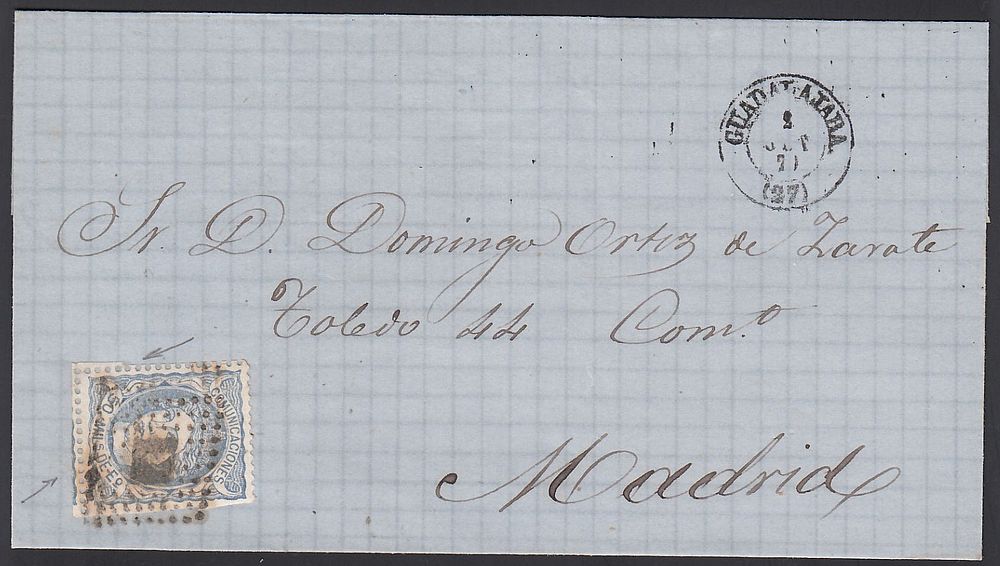 GUADALAJARA
2
OCT
70
(27)
Sr. D. Domingo Ortiz de Zarate
Toledo 44 Comº
Madrid
COMUNICACIONES
50 MILS DE Eº